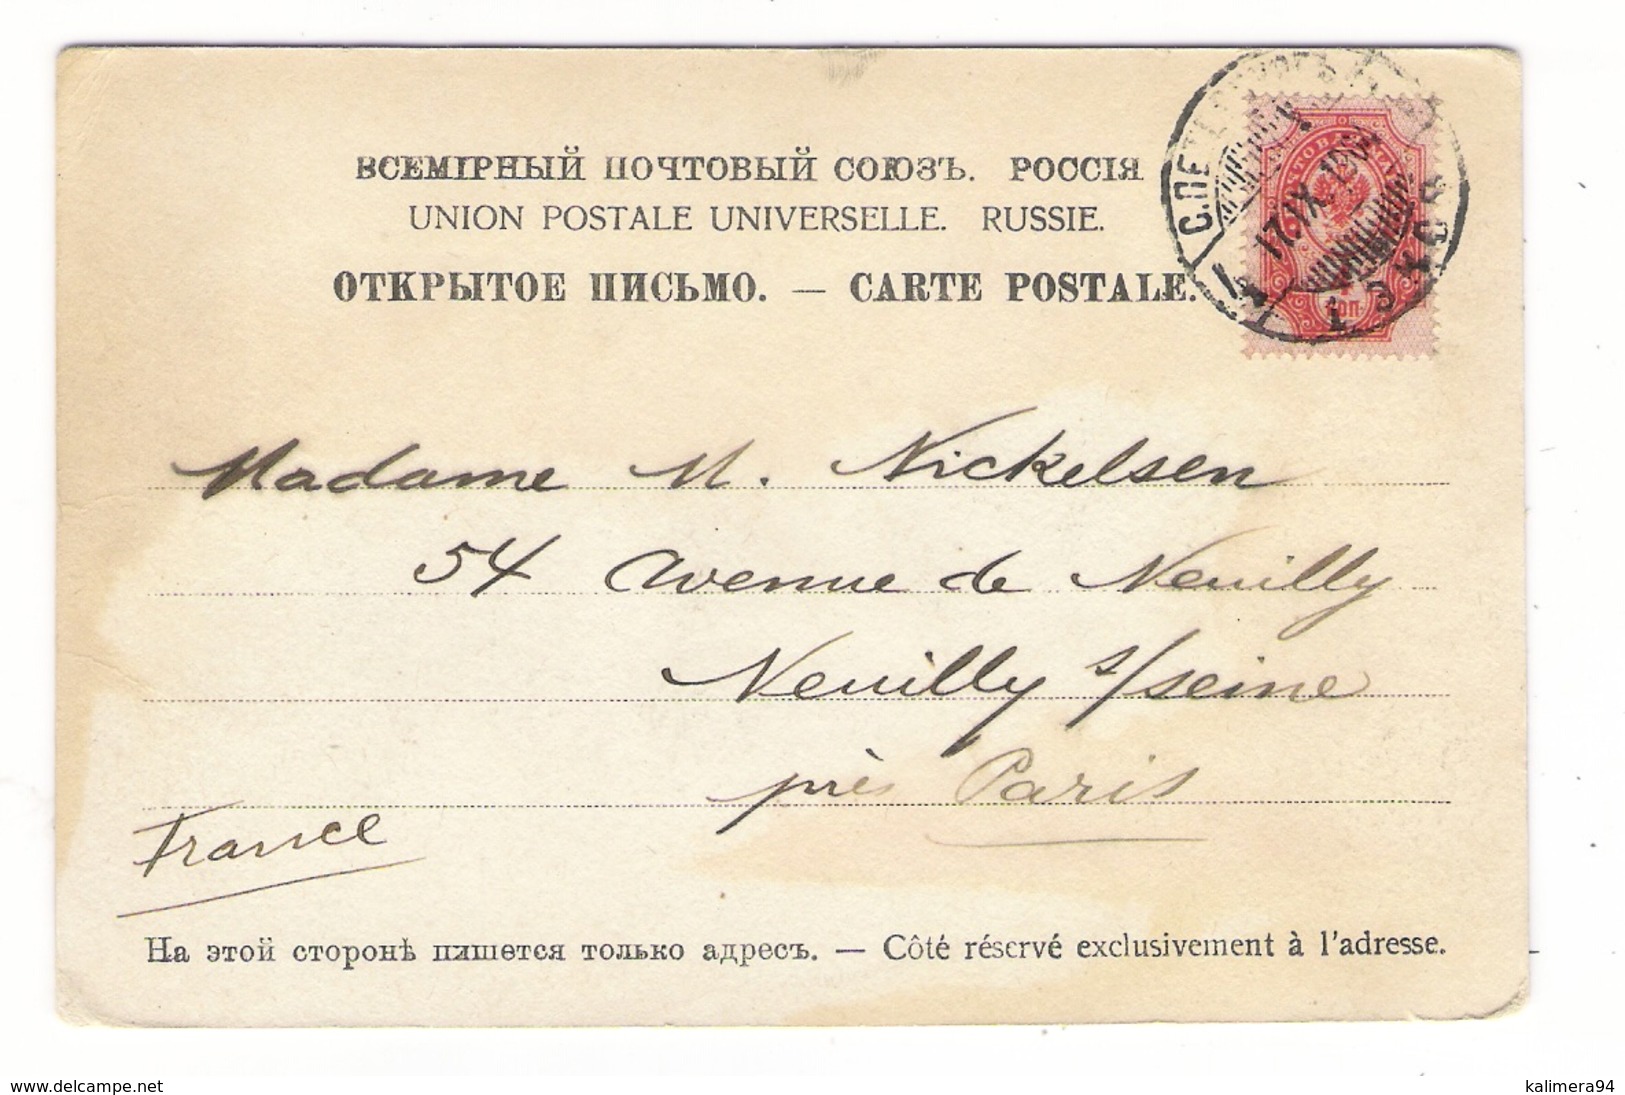 ВСЕМІРНЫЙ ПОЧТОВЫЙ СОЮЗЪ. РОССІЯ
UNION POSTALE UNIVERSELLE. RUSSIE.
ОТКРЫТОЕ ПИСЬМО. — CARTE POSTALE.
Madame M. Nickelsen
54 Avenue de Neuilly
Neuilly s/seine
près Paris
France
На этой сторонѣ пишется только адресъ. — Côté réservé exclusivement à l'adresse.
www.delcampe.net
kalimera94